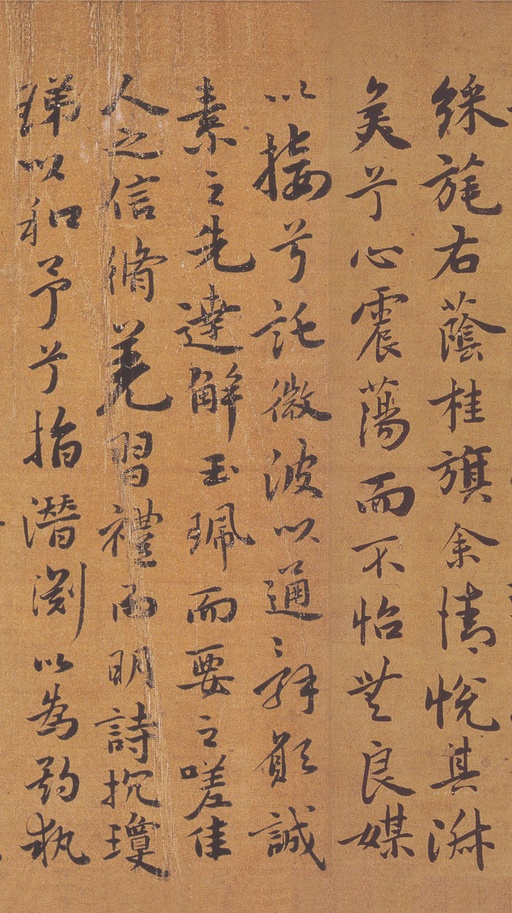 綵旄右蔭桂旗余情悅其淑
美兮心震蕩而不怡無良媒
以接兮託微波以通辞願誠
素之先達解玉珮而要之嗟佳
人之信脩羌習禮而明詩抗瓊
珶以和予兮指潛淵以為期執